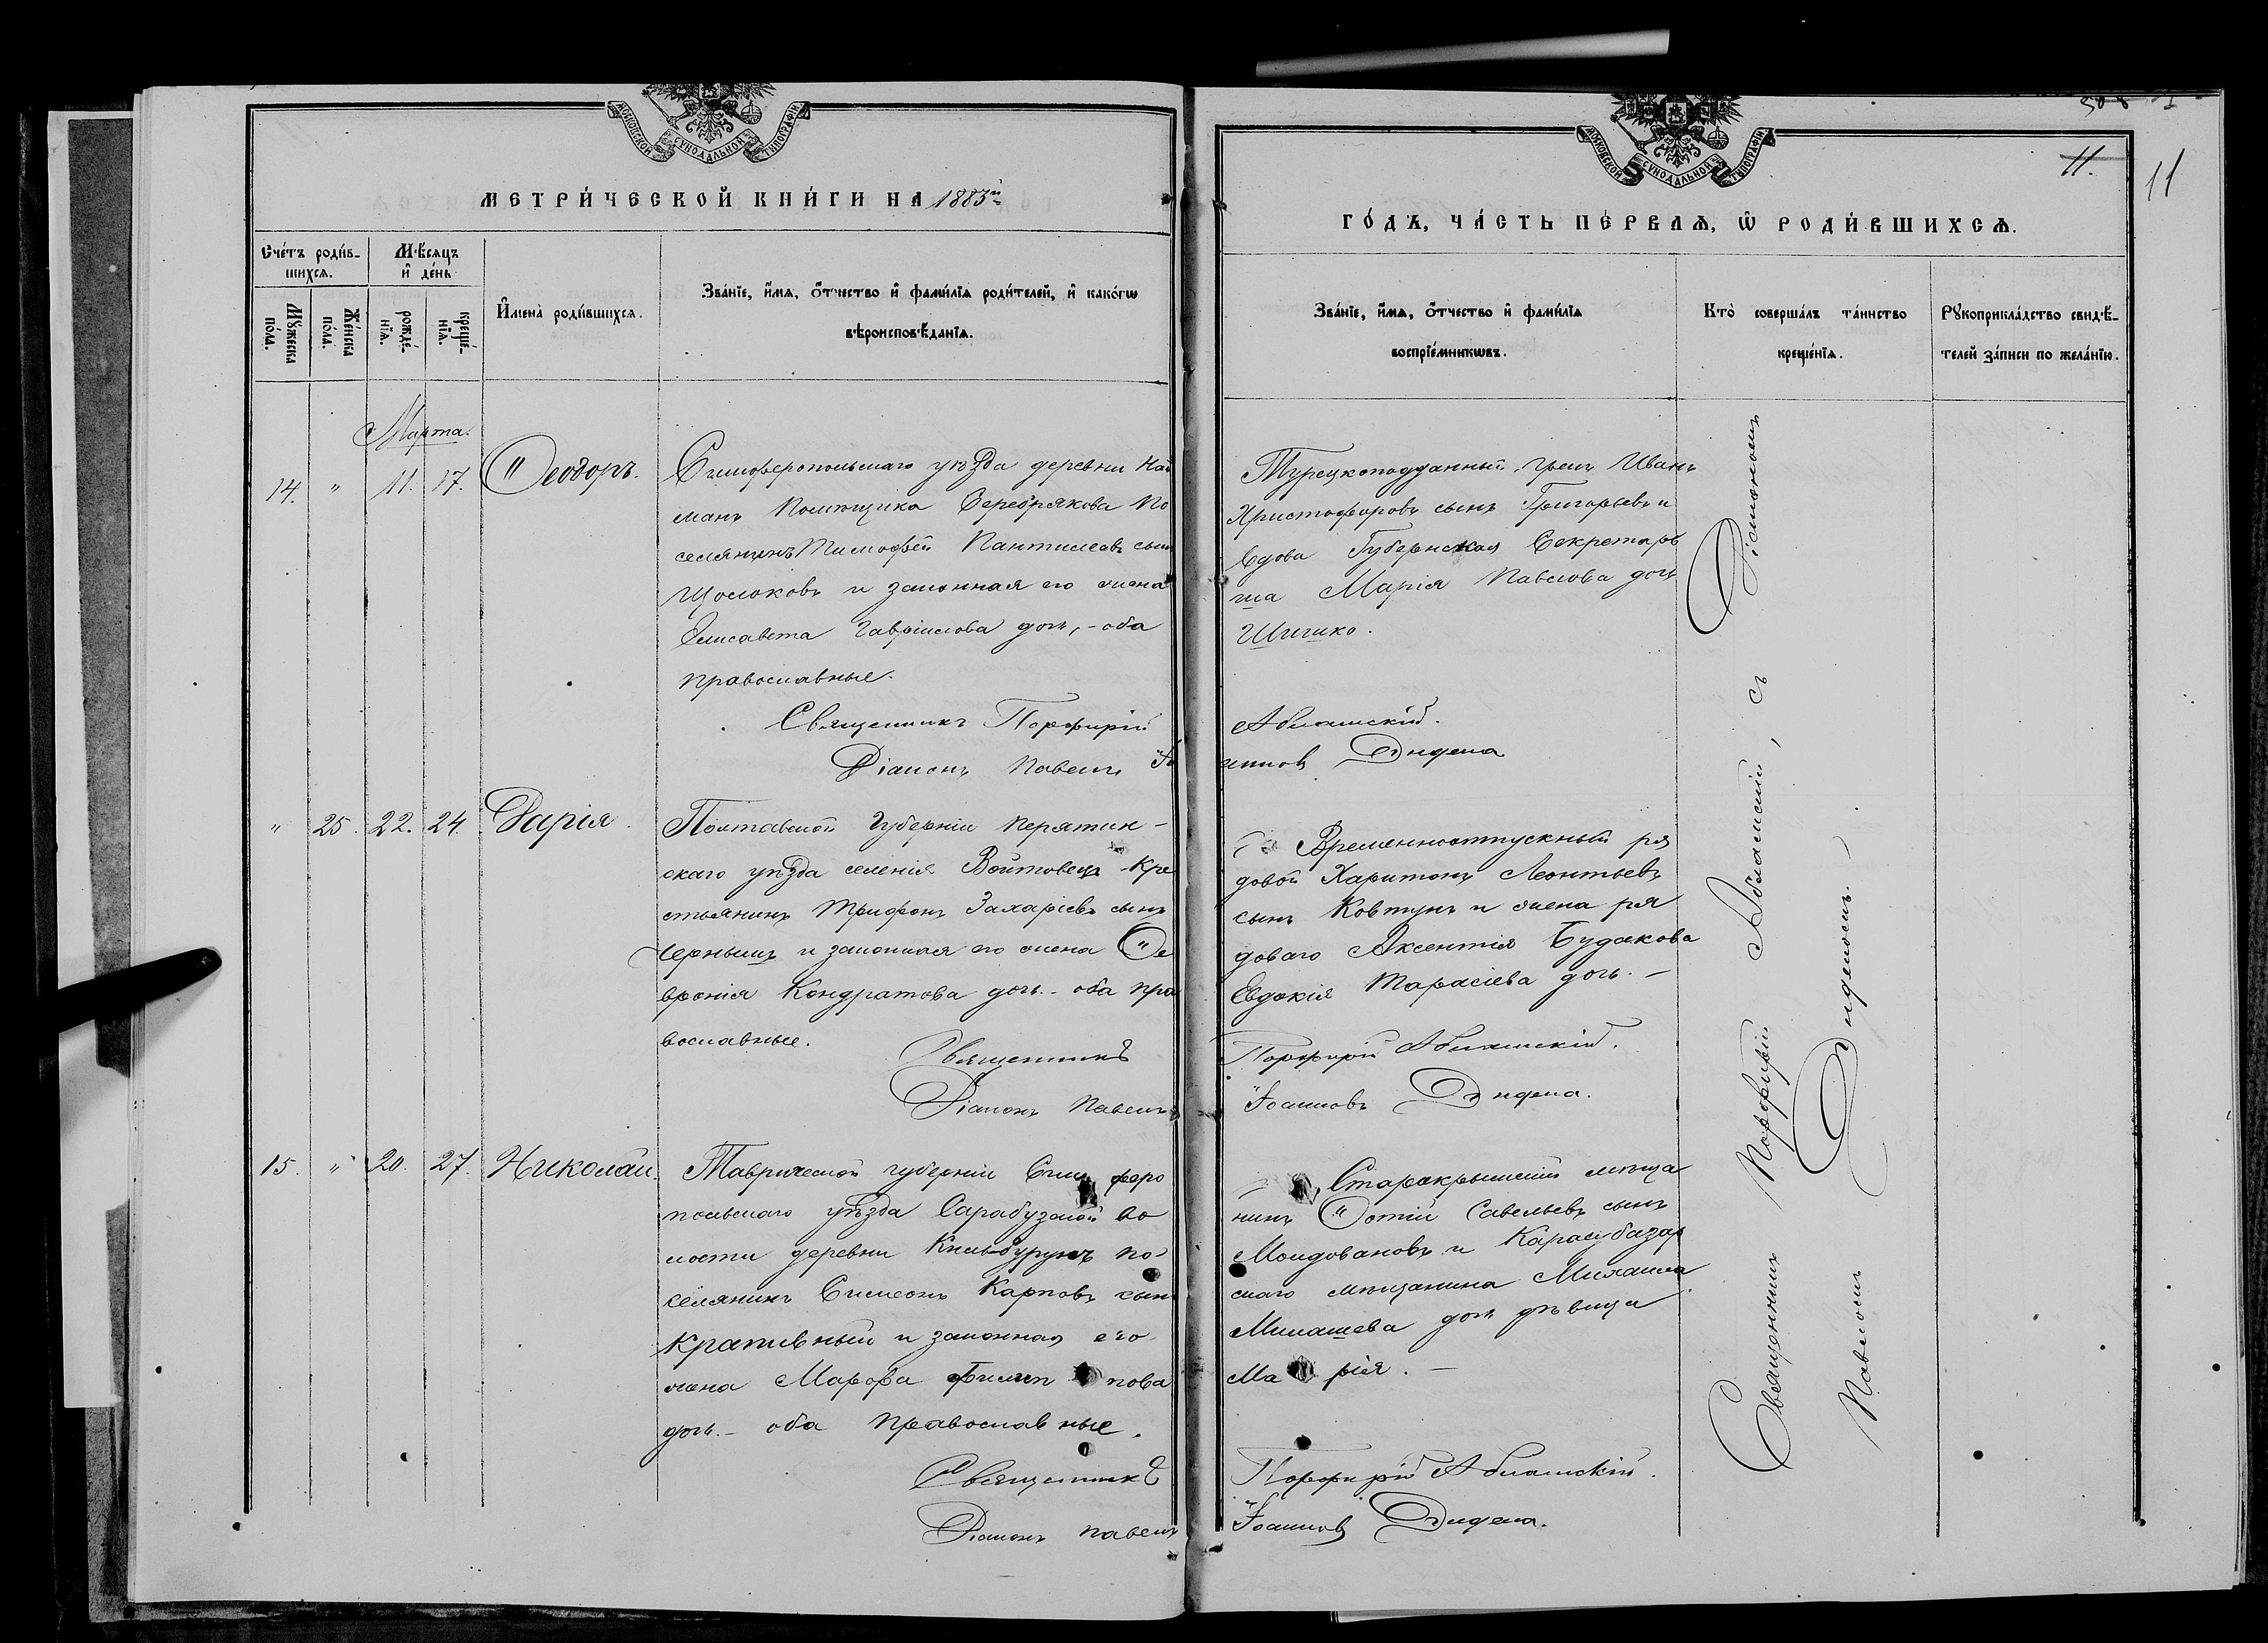 МОСКОВСКОЙ СѴНОДАЛЬНОЙ ТИПОГРАФІИ
МЕТРИ́ЧЕСКОЙ КНИ́ГИ НА 1883й
Сче́тъ роди́в-
шихся.
Мѣ́сяцъ
и де́нь
Мꙋ́жеска
по́ла.
Же́нска
по́ла.
рожде́-
нїѧ.
креще́-
нїѧ.
Имена̀ роди́вшихся.
Зва́нїе, и́мѧ, ѻ́тчество и фами́лїѧ роди́телей, и како́гѡ
вѣроисповѣ́данїѧ.
Марта.
14. " 11. 17. Ѳеодоръ.
Симферопольскаго уѣзда деревни
Помѣщика Серебрякова По
селянинъ Тимофей Пантилеевъ сынъ
Щолоковъ и законная его жена
Елисавета Гавріилова дочь, - оба
православные.
Священникъ Порфирій
Діаконъ Павелъ Іо
" 25. 22. 24. Дарія.
Полтавской Губерніи Пирятин-
скаго уѣзда селенія Войтовецъ Кре
стьянинъ Трифонъ Захаріевъ сынъ
Чернышъ и законная его жена Ѳе
вронія Кондратова дочь. - оба пра
вославные.
Священникъ
Діаконъ Павелъ
15. " 20. 27. Николай.
Таврической губерніи Симферо
польскаго уѣзда Сарабузской во
лости деревни Княбурунъ по-
селянинъ Симеонъ Карповъ сынъ
Крапивный и законная его
жена Марфа Филиппова
дочь. - оба православные.
Священникъ
Діаконъ Павелъ
МОСКОВСКОЙ СѴНОДАЛЬНОЙ ТИПОГРАФІИ
11.
11
ГО́ДЪ, ЧА́СТЬ ПЕ́РВАѦ, Ѡ РОДИ́ВШИХСѦ.
Зва́нїе, и́мѧ, ѻ́тчество и фами́лїѧ
воспрїе́мникѡвъ.
Кто̀ соверша́лъ та́инство
креще́нїѧ.
Рꙋкоприкла́дство свидѣ́-
телей за́писи по жела́нїю.
Турецкоподданный грекъ Иванъ
Христофоровъ сынъ Григорьевъ и
Вдова Губернская Секретар
ша Марія Павлова дочь
Шишко.
Аблямскій.
анновъ Дидена
Временноотпускный ря
довой Харитонъ Леонтьевъ
сынъ Ковтунъ и жена ря
доваго Аксентія Будакова
Евдокія Тарасіева дочь. -
Порфирій Аблямскій.
Іоанновъ Дидена.
Старокрымскій мѣща
нинъ Ѳотій Савельевъ сынъ
Молдовановъ и Карасубазар
скаго мѣщанина Михаила
Милашева дочь дѣвица
Марія. -
Порфирій Аблямскій.
Іоанновъ Дидена.
Священникъ Порфирій Аблямскій, съ Діакономъ
Павломъ Диденомъ.